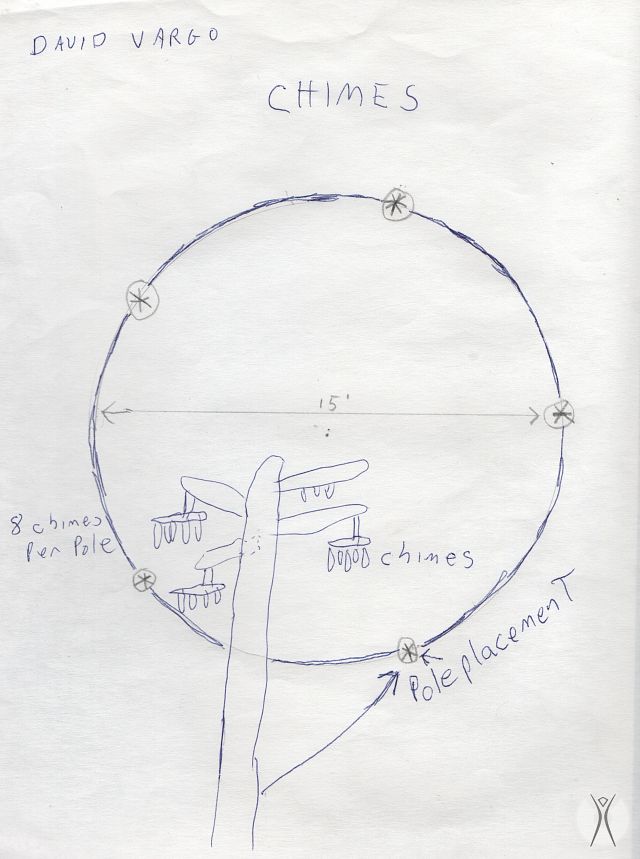 DAVID VARGO
CHIMES
15'
8 chimes
Per Pole
chimes
Pole placement